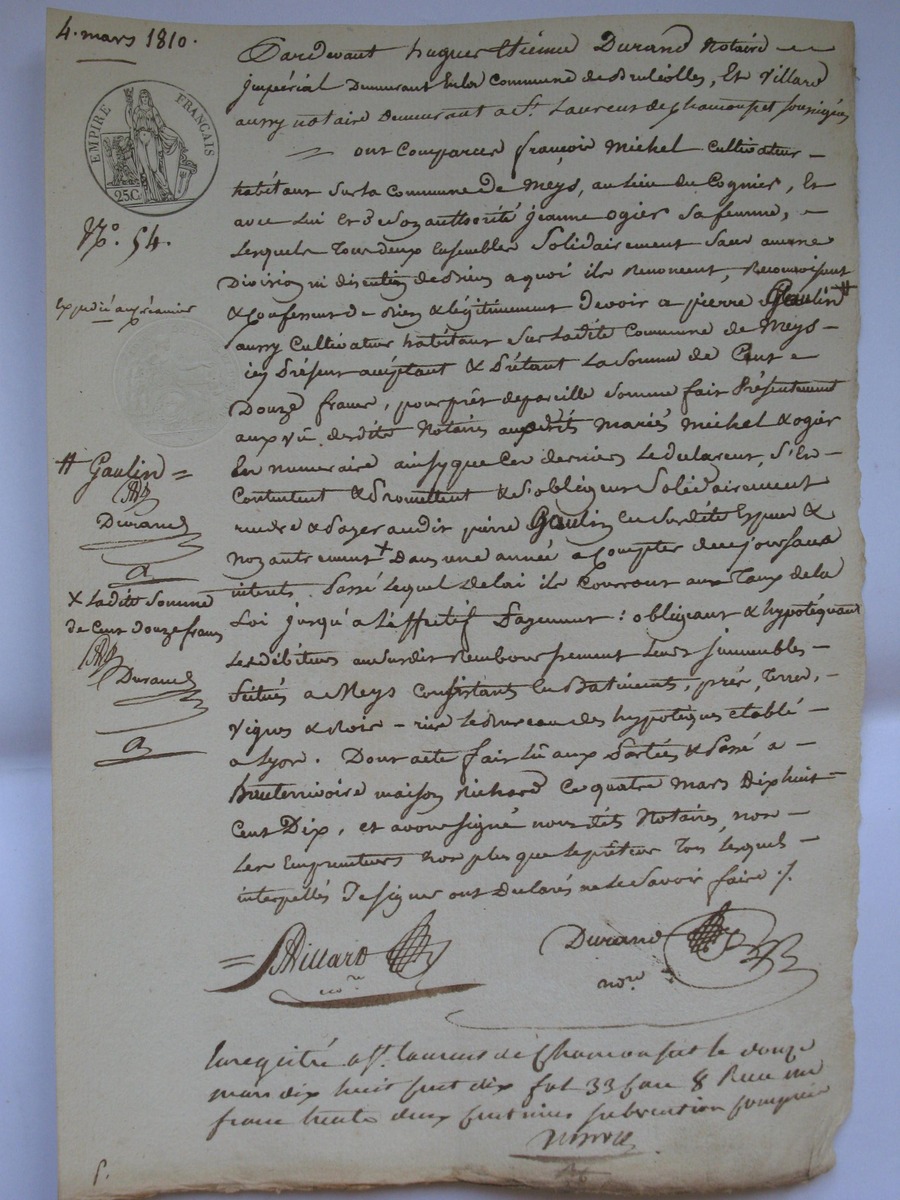 4. mars 1810.
Pardevant hugues Etienne Durand Notaire
Impérial Demeurant en la Commune de Brulliolles, Et Villard
aussy notaire Demeurant a St. Laurent de Chamousset soussignés
ont Comparus françois Michel Cultivateur
habitant sur la Commune de Meys, au lieu du Cognier, Et
avec Lui et de son authorité jeanne ogier sa femme,
Lesquels tous deux Ensembles Solidairement Sans aucune
Division ni discution de Biens a quoi ils Renoncent, Reconnoissent
& Confessent de Bien & légitimement Devoir a pierre Gaulin #
aussy Cultivateur habitant sur la dite Commune de Meys
icy Présent acceptant & Prétant La Somme de Cent
Douze francs, pour prêt de pareille Somme fait Présentement
aux vû desdits Notaires auxdits mariés michel & ogier
En numeraire ainsy que Ces derniers Le déclarent, S'En
Contentent & Promettent & S'obligent Solidairement
rendre & Payer audit pierre Gaulin en Susdite Espece &
non autrement + Dans une année a Compter de ce jour sans
interets. Passé Lequel Delai ils Courront aux Taux de la
Loi jusqu'a L'éffectif Payement : obligeant & hypotéquant
Les débiteurs au Susdit Remboursement Leurs jmmeubles
Scitués a Meys Consistants En Batiments, prés, Terres,
Vignes & Bois – rière Le Bureau des hypoteques etablé
a Lyon. Dont acte fait Lû aux Parties & Passé a
Brullioire maison Richard Ce quatre Mars Dix huit
Cent Dix, et avons signé nous dits Notaires, non
Les Emprunteurs Non plus que Le prêteur Tous Lesquels
interpellés De signer ont Déclarés ne Le Savoir faire ./.
EMPIRE FRANÇAIS
25.C.
N°. 54.
Expedié au créancier
# Gaulin =
Durand
+ Ladite Somme
de Cent douze francs
Durand
Villard
nore
Durand
nore
Enregistré a St. Laurent de Chamousset le douze
mars dix huit cent dix fol 33 case 8 Recu un
franc trente deux centimes subvention comprise